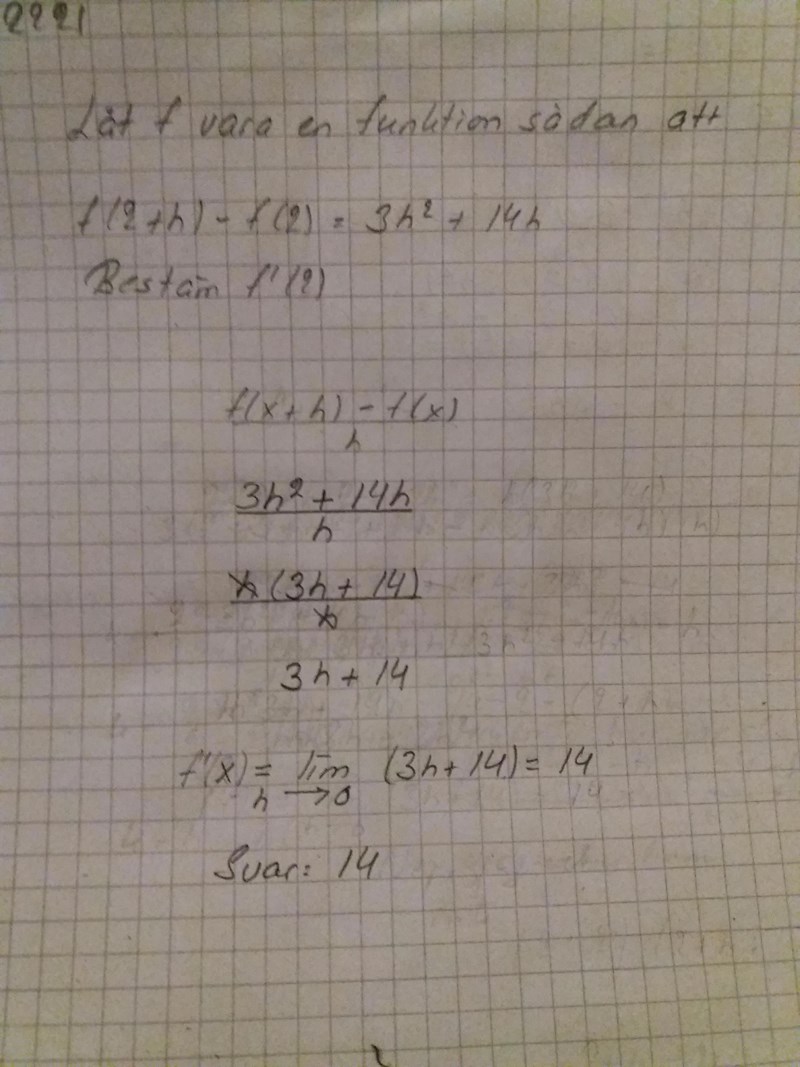 2221
Låt f vara en funktion sådan att
f(2+h) - f(2) = 3h² + 14h
Bestäm f'(2)
f(x+h) - f(x)
h
3h² + 14h
h
h(3h + 14)
h
3h + 14
f'(x) = lim (3h + 14) = 14
h → 0
Svar: 14